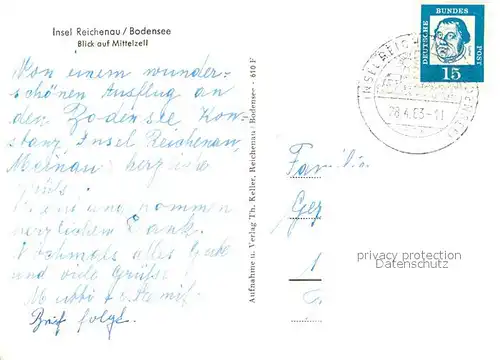 Insel Reichenau / Bodensee
Blick auf Mittelzell
Von einem wunder-
schönen Ausflug an
den Bodensee Kon-
stanz, Insel Reichenau,
Meinau herzliche
Grüße.
nommen
herzlichen Dank.
Nochmals alles Gute
und viele Grüße
Brief folgt.
Aufnahme u. Verlag Th. Keller, Reichenau / Bodensee - 610 F
DEUTSCHE BUNDES POST
15
INSEL REICHENAU
28.4.63-11
Familie
privacy protection
Datenschutz